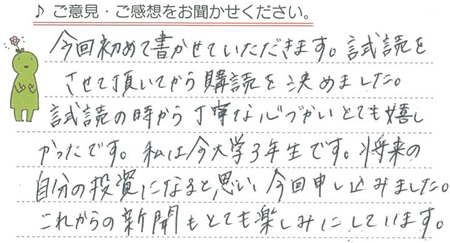 ♪ ご意見・ご感想をお聞かせください。
今回初めて書かせていただきます。試読を
させて頂いてから購読を決めました。
試読の時から丁寧な心づかいとても嬉し
かったです。私は今大学3年生です。将来の
自分の投資になると思い、今回申し込みました。
これからの新聞もとても楽しみにしています。